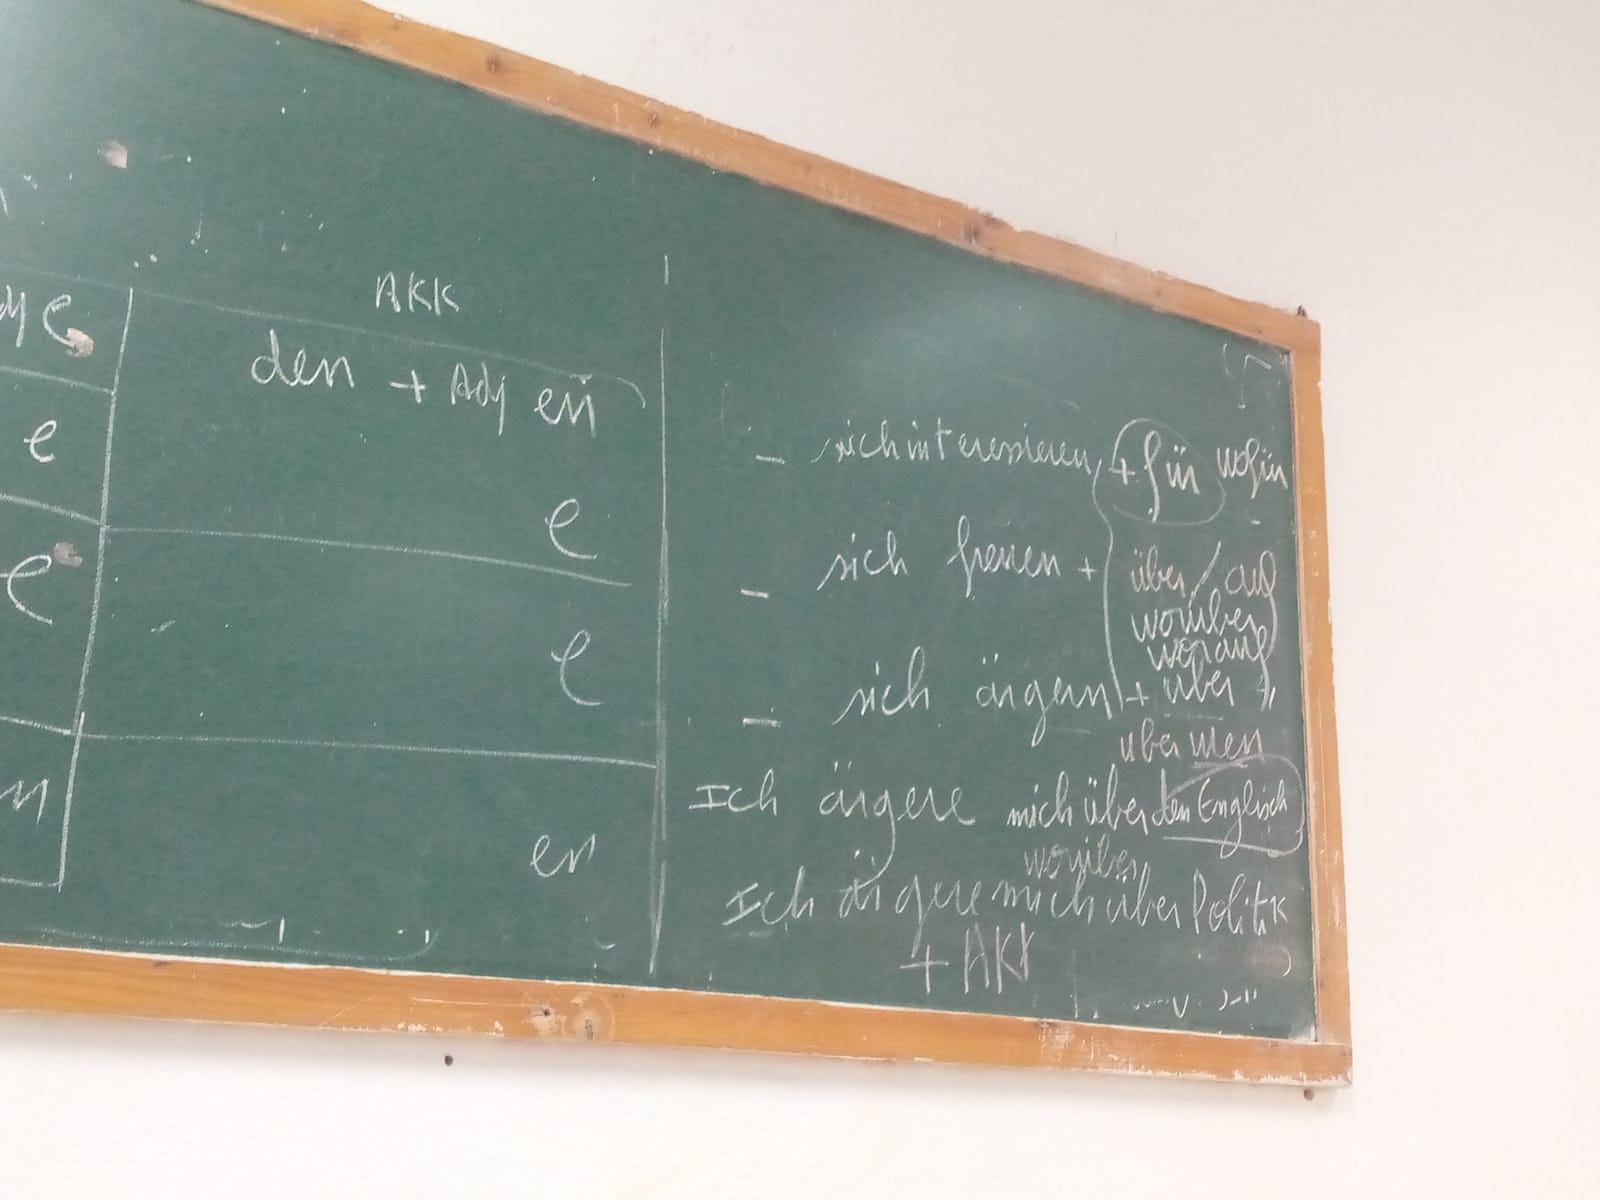 AKK
den + Adj en
e
e
e
e
en
- sich interessieren + für wofür
- sich freuen + über / auf
worüber
worauf
- sich ärgern + über
über wen
Ich ärgere mich über den Englisch
worüber
Ich ärgere mich über Politik
+ AKK